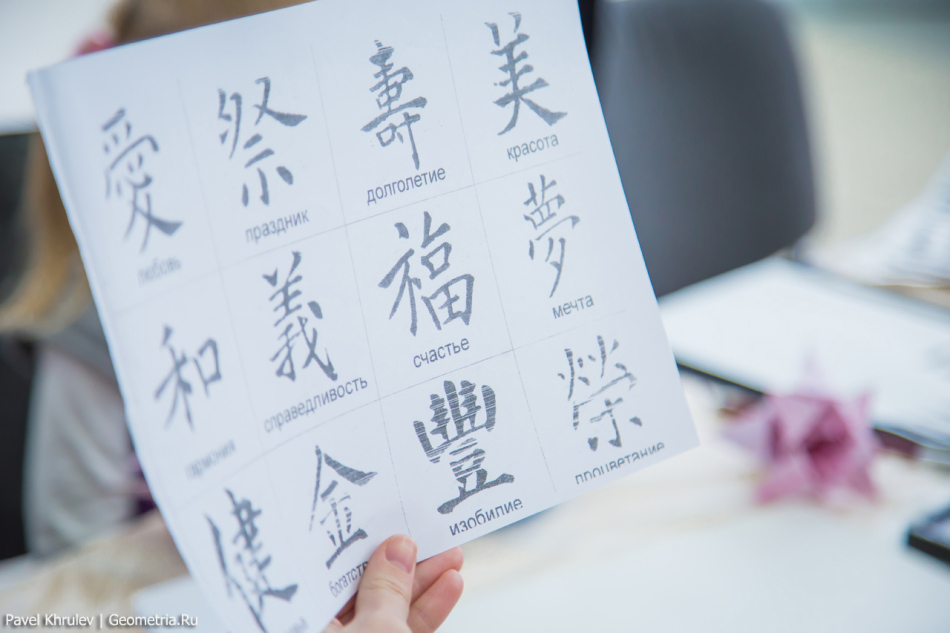 愛 祭 壽 美
любовь праздник долголетие красота
和 義 福 夢
гармония справедливость счастье мечта
健 金 豐 榮
изобилие процветание
Pavel Khrulev | Geometria.Ru